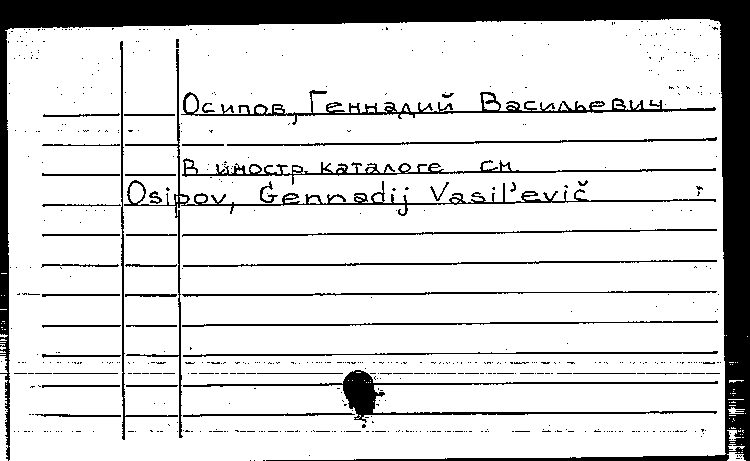 Осипов, Геннадий Васильевич
В иностр. каталоге см.
Osipov, Gennadij Vasil'evič